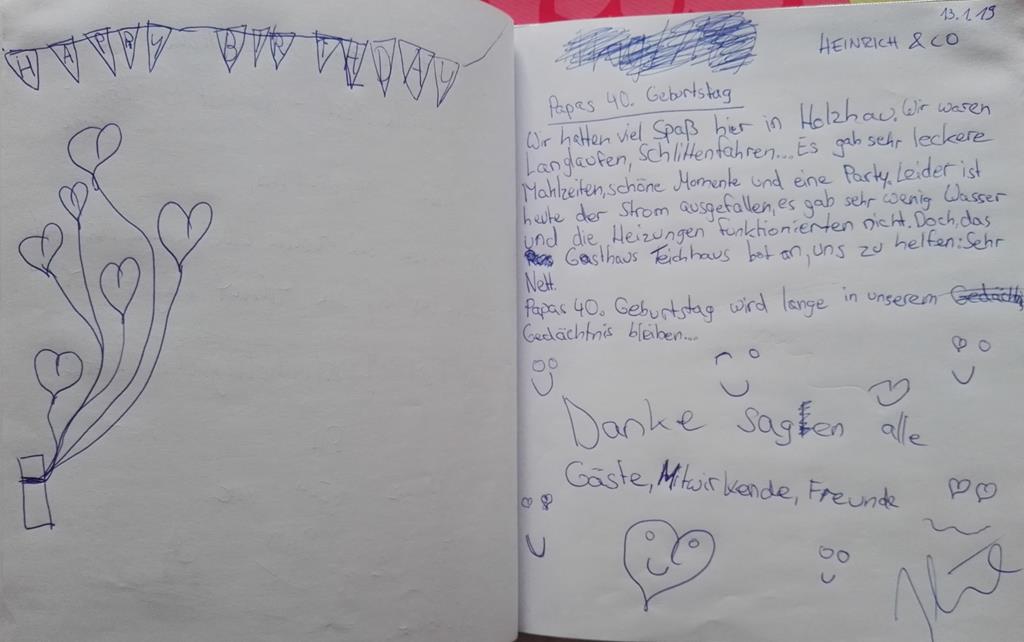 HAPPY BIRTHDAY
13.1.19
HEINRICH & CO
Papas 40. Geburtstag
Wir hatten viel Spaß hier in Holzhau. Wir waren
Langlaufen, Schlittenfahren... Es gab sehr leckere
Mahlzeiten, schöne Momente und eine Party. Leider ist
heute der Strom ausgefallen, es gab sehr wenig Wasser
und die Heizungen funktionierten nicht. Doch, das
Gasthaus Teichhaus bot an, uns zu helfen: Sehr
Nett.
Papas 40. Geburtstag wird lange in unserem
Gedächtnis bleiben...
Danke sagen alle
Gäste, Mitwirkende, Freunde